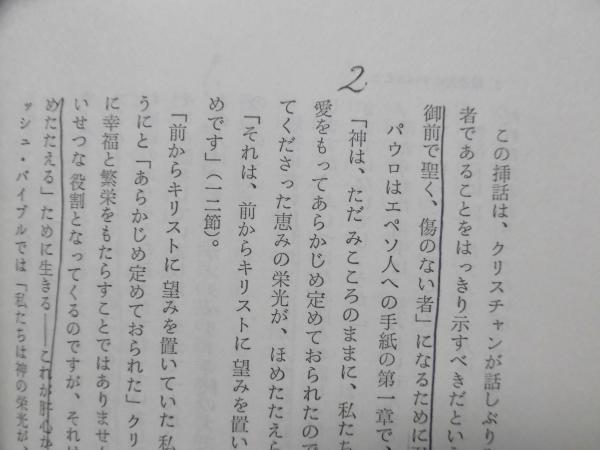 2
この挿話は、クリスチャンが話しぶり
者であることをはっきり示すべきだという
御前で聖く、傷のない者」になるために
パウロはエペソ人への手紙の第一章で、
「神は、ただ みこころのままに、私たち
愛をもってあらかじめ定めておられたので
てくださった恵みの栄光が、ほめたたえら
「それは、前からキリストに 望みを置い
めです」（一二節）。
「前からキリストに 望みを置いていた 私
うにと「あらかじめ定めておられた」クリ
に 幸福と繁栄をもたらすことではありません
いせつな 役割となってくるのですが、それは
めたたえる」ために生きる――これが肝心か
ッシュ・バイブルでは「私たちは神の栄光が、